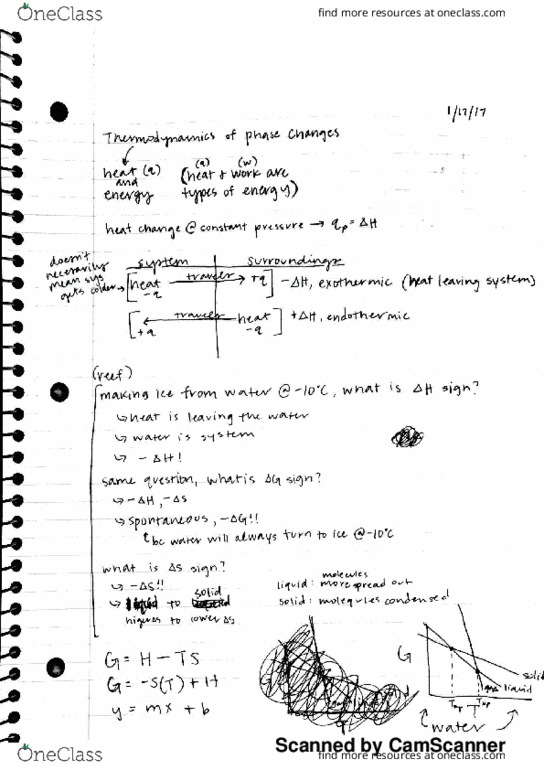 OneClass
find more resources at oneclass.com
1/17/17
Thermodynamics of phase changes
heat (q) (heat + work are
(q) (w)
and
energy types of energy)
heat change @ constant pressure → qp = ΔH
doesn't
necessarily
mean sys
gets colder →
system surroundings
[heat travels → +q] -ΔH, exothermic (heat leaving system)
-q
[ ← travels heat ] +ΔH, endothermic
+q -q
(reef)
making ice from water @ -10°C, what is ΔH sign?
↳ heat is leaving the water
↳ water is system
↳ - ΔH!
same question, what is ΔG sign?
↳ -ΔH, -ΔS
↳ spontaneous, -ΔG!!
bc water will always turn to ice @ -10°C
what is ΔS sign?
↳ -ΔS!!
↳ liquid to solid
higher to lower ΔS
molecules
liquid: more spread out
solid: molequles condensed
G = H - TS
G = -S(T) + H
y = mx + b
G
solid
liquid
T
water
Scanned by CamScanner
OneClass
find more resources at oneclass.com